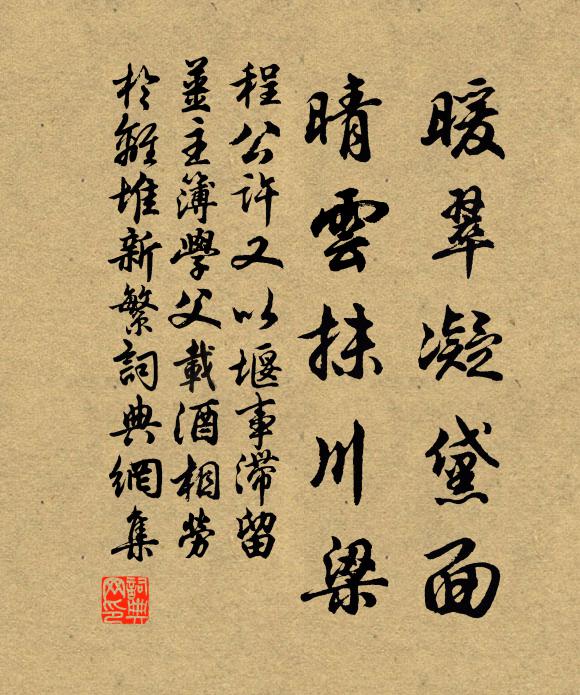 暖翠凝黛面
晴雲抹川梁
程公許又以堰事滯留
薑主簿學父載酒相勞
於離堆新繁詞典網集
詞典
网印